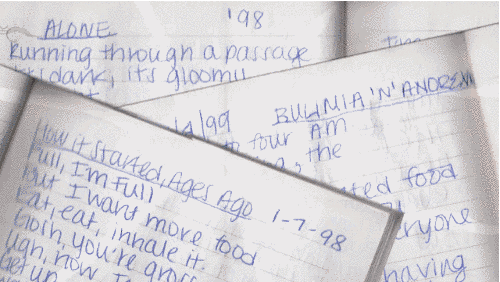 '98
ALONE
Running through a passage
dark, its gloomy
4/99 BULIMIA 'N'
four AM
the
food
eryone
having
How it Started, Ages Ago 1-7-98
Full, I'm Full
But I want more food
Eat, eat, inhale it.
you're gross
Ugh, now I
Get up